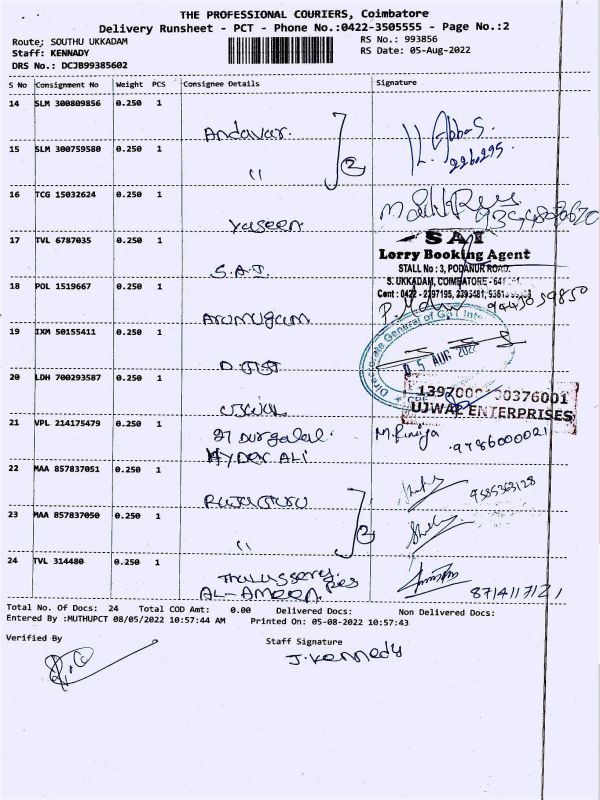 THE PROFESSIONAL COURIERS, Coimbatore
Delivery Runsheet - PCT - Phone No.:0422-3505555 - Page No.:2
Route; SOUTHU UKKADAM
RS No.: 993856
Staff: KENNADY
RS Date: 05-Aug-2022
DRS No.: DCJB99385602
S No Consignment No Weight PCS Consignee Details Signature
14 SLM 300809856 0.250 1
Andavar
2
15 SLM 300759580 0.250 1
"
16 TCG 15032624 0.250 1
Yaseen
17 TVL 6787035 0.250 1
S.A.I.
SAI
Lorry Booking Agent
STALL No : 3, PODANUR ROAD.
S. UKKADAM, COIMBATORE - 641
18 POL 1519667 0.250 1
Arumugam
19 IXM 50155411 0.250 1
Directorate General of GST Inte
05 AUG 202
20 LDH 700293587 0.250 1
UJWAL
UJWAL ENTERPRISES
21 VPL 214175479 0.250 1
HYDER ALI
9786000021
22 MAA 857837051 0.250 1
2
23 MAA 857837050 0.250 1
"
24 TVL 314480 0.250 1
Thalassery
AL-AMEEN
Total No. Of Docs: 24 Total COD Amt: 0.00 Delivered Docs: Non Delivered Docs:
Entered By :MUTHUPCT 08/05/2022 10:57:44 AM Printed On: 05-08-2022 10:57:43
Verified By
Staff Signature
J. Kennedy